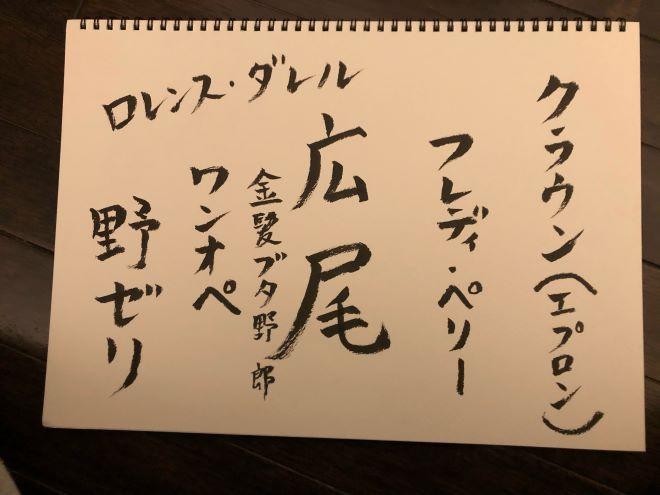 クラウン(エプロン)
フレディ・ペリー
広尾
ロレンス・ダレル
金髪ブタ野郎
ワンオペ
野ゼリ